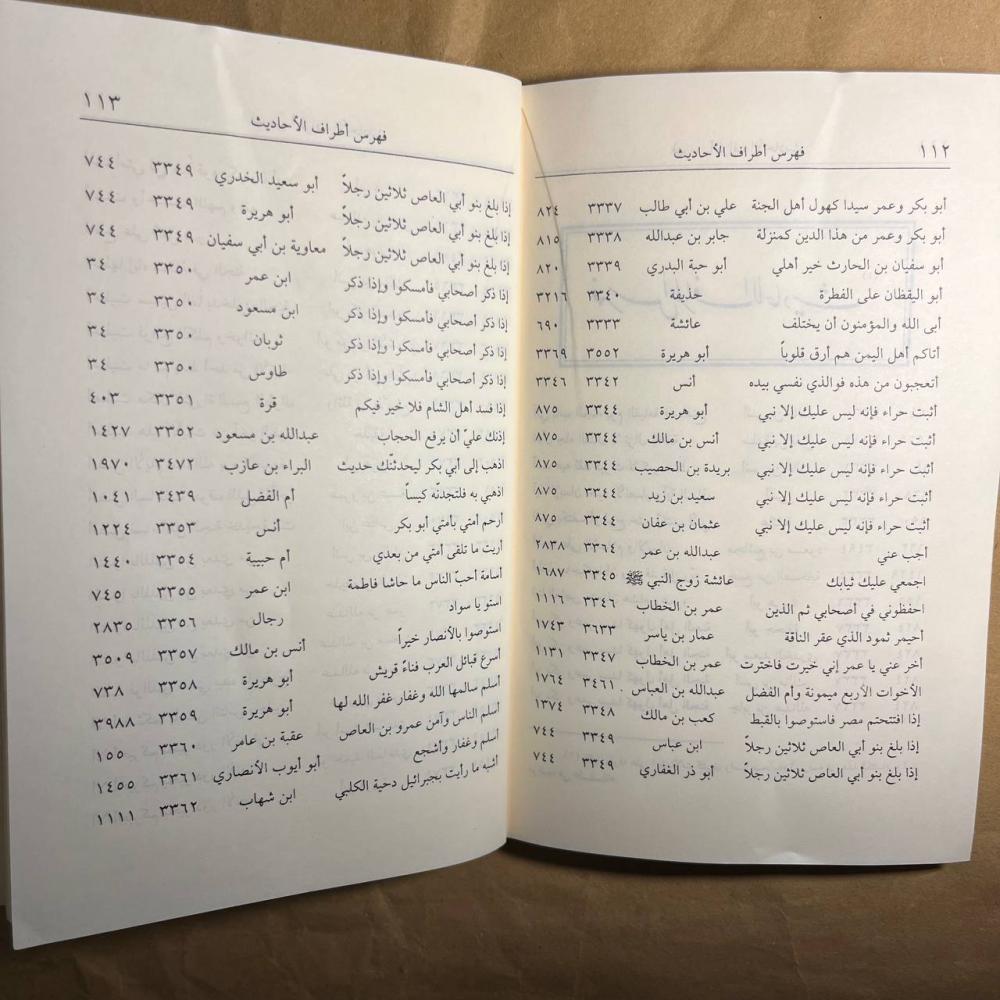 ١١٢ فهرس أطراف الأحاديث
أبو بكر وعمر سيدا كهول أهل الجنة علي بن أبي طالب ٣٣٣٧ ٨٢٤
أبو بكر وعمر من هذا الدين كمنزلة جابر بن عبدالله ٣٣٣٨ ٨١٥
أبو سفيان بن الحارث خير أهلي أبو حبة البدري ٣٣٣٩ ٨٢٠
أبو اليقظان على الفطرة حذيفة ٣٣٤٠ ٣٢١٦
أبى الله والمؤمنون أن يختلف عائشة ٣٣٣٣ ٦٩٠
أتاكم أهل اليمن هم أرق قلوباً أبو هريرة ٣٥٥٢ ٣٣٦٩
أتعجبون من هذه فوالذي نفسي بيده أنس ٣٣٤٢ ٣٣٤٦
أثبت حراء فإنه ليس عليك إلا نبي أبو هريرة ٣٣٤٤ ٨٧٥
أثبت حراء فإنه ليس عليك إلا نبي أنس بن مالك ٣٣٤٤ ٨٧٥
أثبت حراء فإنه ليس عليك إلا نبي بريدة بن الحصيب ٣٣٤٤ ٨٧٥
أثبت حراء فإنه ليس عليك إلا نبي سعيد بن زيد ٣٣٤٤ ٨٧٥
أثبت حراء فإنه ليس عليك إلا نبي عثمان بن عفان ٣٣٤٤ ٨٧٥
أجب عني عبدالله بن عمر ٣٣٦٤ ٢٨٣٨
اجمعي عليك ثيابك عائشة زوج النبي ﷺ ٣٣٤٥ ١٦٨٧
احفظوني في أصحابي ثم الذين عمر بن الخطاب ٣٣٤٦ ١١١٦
أحيمر ثمود الذي عقر الناقة عمار بن ياسر ٣٦٣٣ ١٧٤٣
أخر عني يا عمر إني خيرت فاخترت عمر بن الخطاب ٣٣٤٧ ١١٣١
الأخوات الأربع ميمونة وأم الفضل عبدالله بن العباس ٣٤٦١ ١٧٦٤
إذا افتتحتم مصر فاستوصوا بالقبط كعب بن مالك ٣٣٤٨ ١٣٧٤
إذا بلغ بنو أبي العاص ثلاثين رجلاً ابن عباس ٣٣٤٩ ٧٤٤
إذا بلغ بنو أبي العاص ثلاثين رجلاً أبو ذر الغفاري ٣٣٤٩ ٧٤٤
فهرس أطراف الأحاديث ١١٣
إذا بلغ بنو أبي العاص ثلاثين رجلاً أبو سعيد الخدري ٣٣٤٩ ٧٤٤
إذا بلغ بنو أبي العاص ثلاثين رجلاً أبو هريرة ٣٣٤٩ ٧٤٤
إذا بلغ بنو أبي العاص ثلاثين رجلاً معاوية بن أبي سفيان ٣٣٤٩ ٧٤٤
إذا ذكر أصحابي فأمسكوا وإذا ذكر ابن عمر ٣٣٥٠ ٣٤
إذا ذكر أصحابي فأمسكوا وإذا ذكر ابن مسعود ٣٣٥٠ ٣٤
إذا ذكر أصحابي فأمسكوا وإذا ذكر ثوبان ٣٣٥٠ ٣٤
إذا ذكر أصحابي فأمسكوا وإذا ذكر طاوس ٣٣٥٠ ٣٤
إذا فسد أهل الشام فلا خير فيكم قرة ٣٣٥١ ٤٠٣
إذنك عليّ أن يرفع الحجاب عبدالله بن مسعود ٣٣٥٢ ١٤٢٧
اذهب إلى أبي بكر ليحدثنّك حديث البراء بن عازب ٣٤٧٢ ١٩٧٠
اذهبي به فلتجدنّه كيساً أم الفضل ٣٤٣٩ ١٠٤١
أرحم أمتي بأمتي أبو بكر أنس ٣٣٥٣ ١٢٢٤
أريت ما تلقى أمتي من بعدي أم حبيبة ٣٣٥٤ ١٤٤٠
أسامة أحبّ الناس ما حاشا فاطمة ابن عمر ٣٣٥٥ ٧٤٥
استو يا سواد رجال ٣٣٥٦ ٢٨٣٥
استوصوا بالأنصار خيراً أنس بن مالك ٣٣٥٧ ٣٥٠٩
أسرع قبائل العرب فناءً قريش أبو هريرة ٣٣٥٨ ٧٣٨
أسلم سالمها الله وغفار غفر الله لها أبو هريرة ٣٣٥٩ ٣٩٨٨
أسلم الناس وآمن عمرو بن العاص عقبة بن عامر ٣٣٦٠ ١٥٥
أسلم وغفار وأشجع أبو أيوب الأنصاري ٣٣٦١ ١٤٥٥
أشبه ما رأيت بجبرائيل دحية الكلبي ابن شهاب ٣٣٦٢ ١١١١